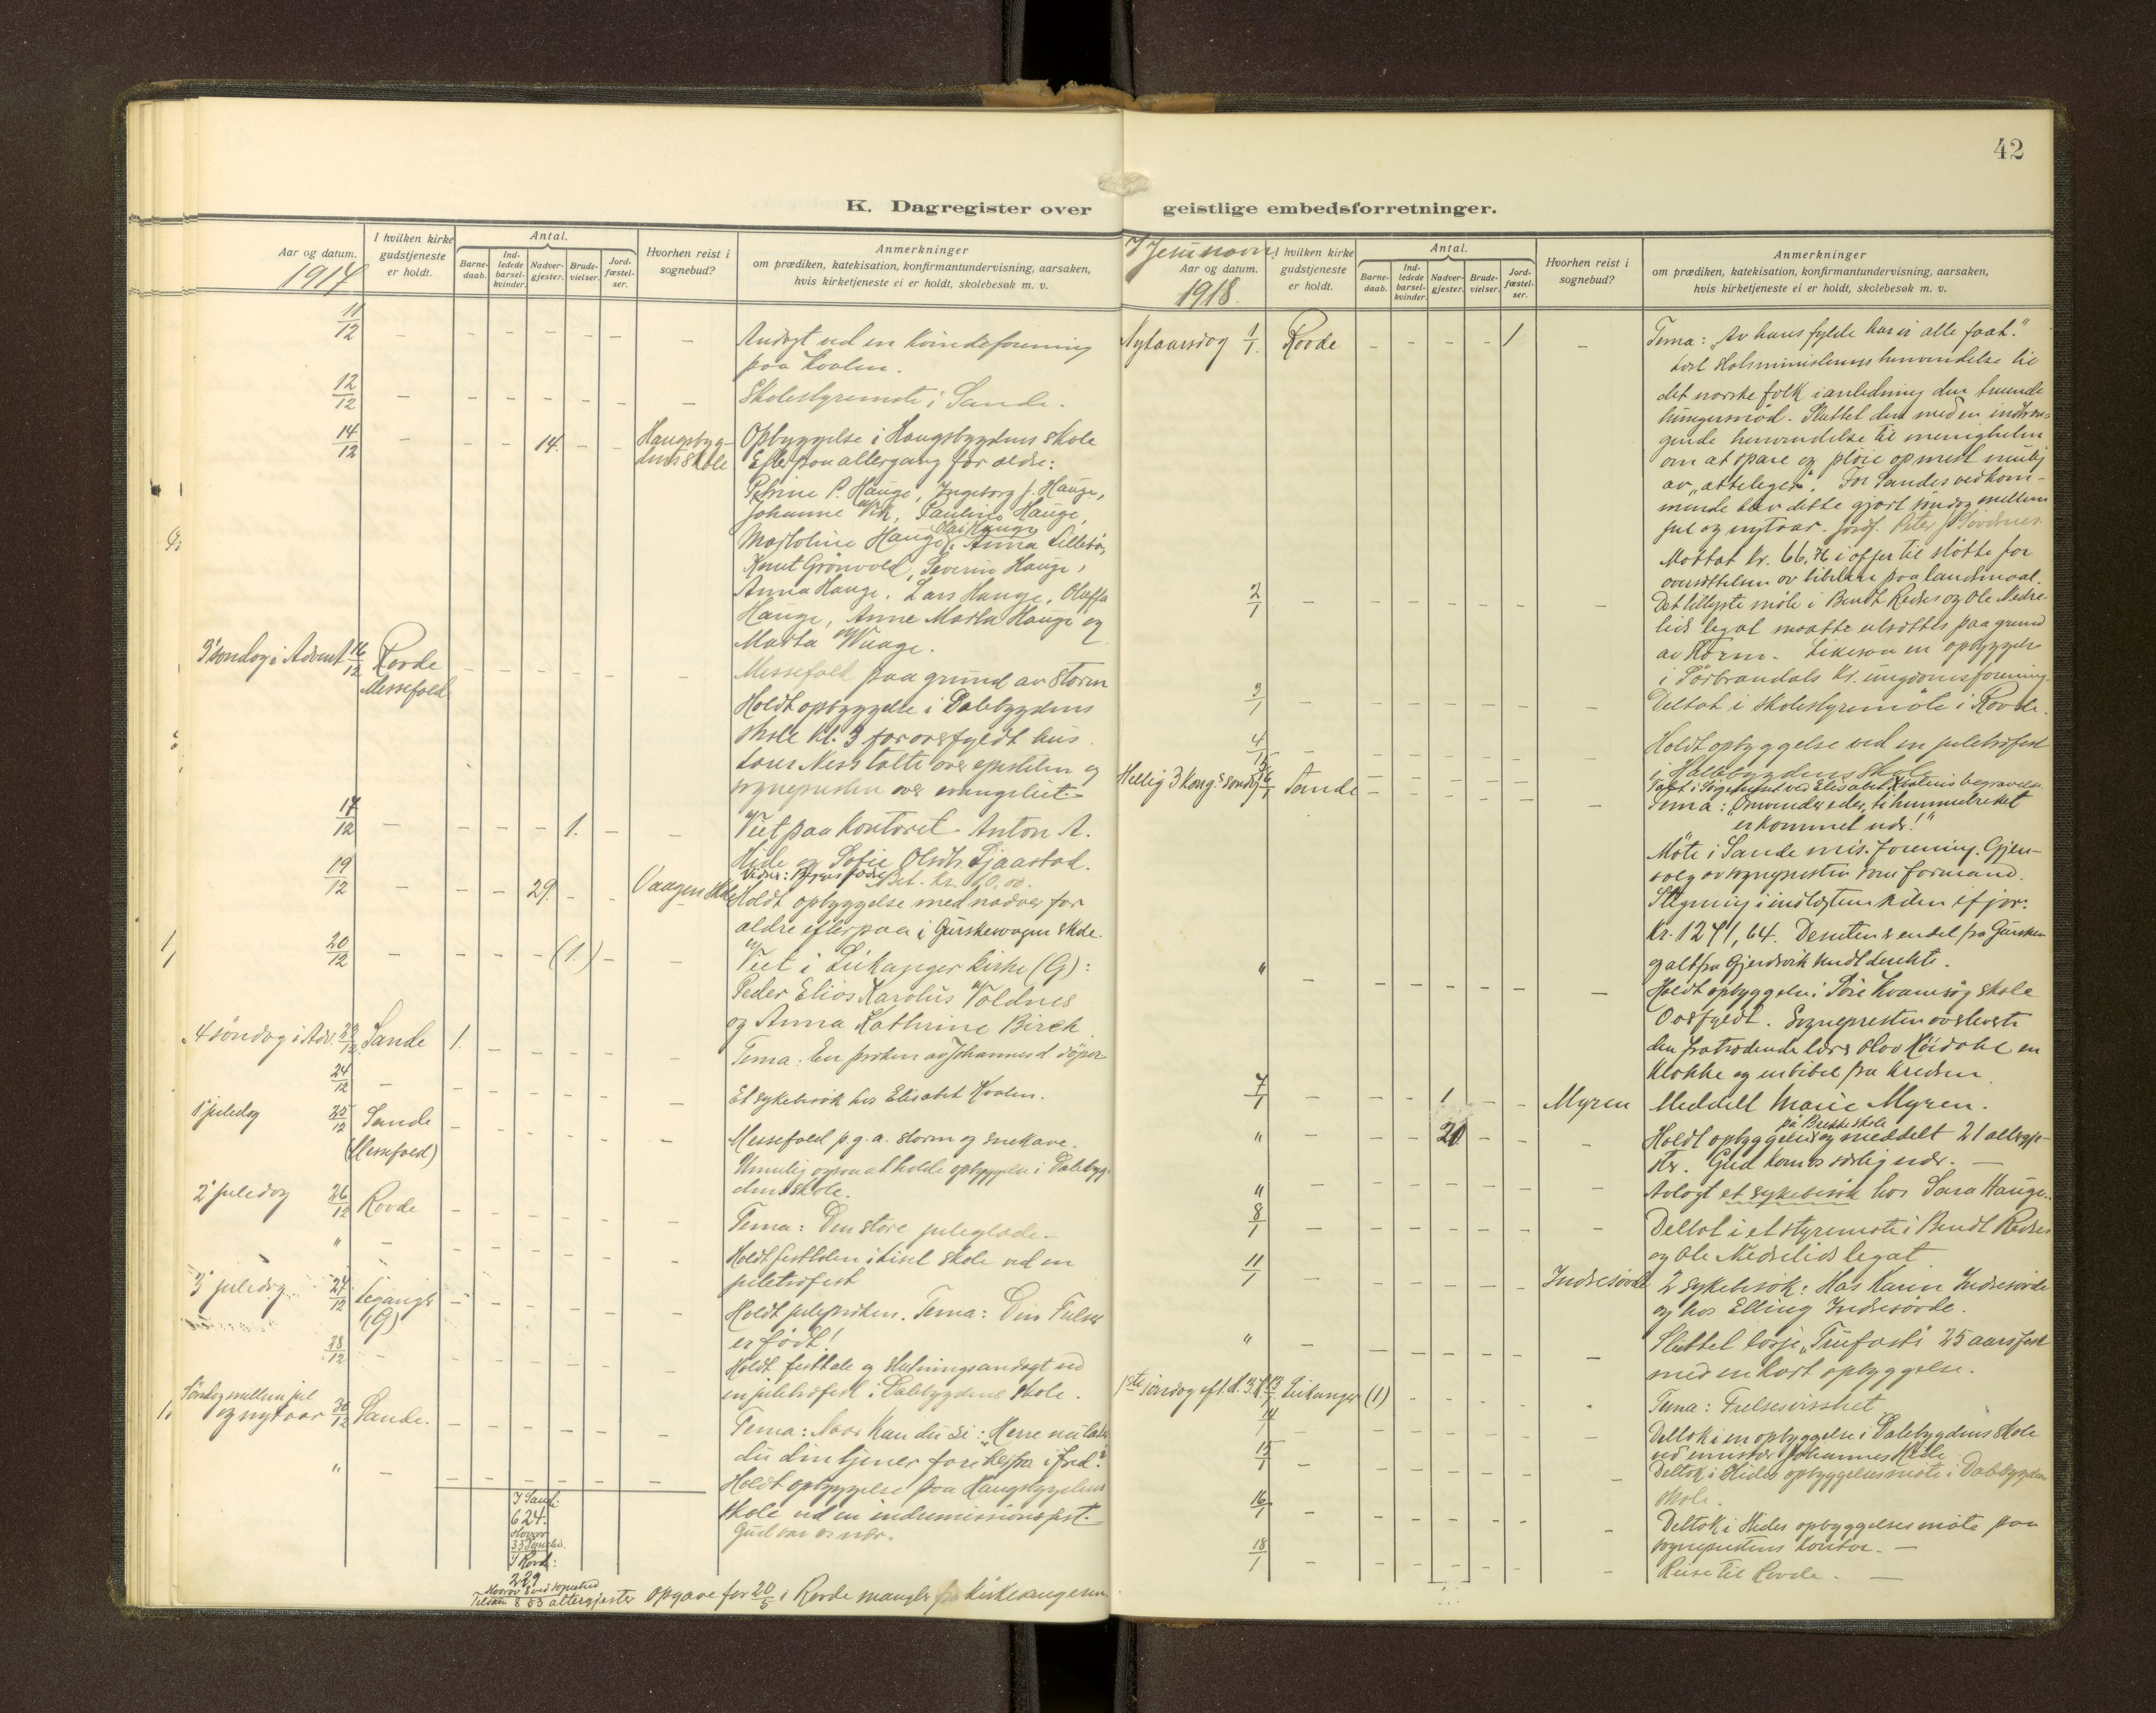 42
K. Dagregister over geistlige embedsforretninger.
Aar og datum.
1917
I hvilken kirke gudstjeneste er holdt.
Antal.
Barne-daab.
Ind-ledede barsel-kvinder.
Nadver-gjester.
Brude-vielser.
Jord-fæstel-ser.
Hvorhen reist i sognebud?
Anmerkninger
om prædiken, katekisation, konfirmantundervisning, aarsaken,
hvis kirketjeneste ei er holdt, skolebesøk m. v.
11/12 – – – – – – – Andagt ved en kvindeforening
paa Kvalen.
12/12 – – – – – – – Skolestyremøte i Sande.
14/12 – – – 14. – – Haugsbyg-
dens skole
Opbyggelse i Haugsbygdens skole
Efterpaa altergang for ældre:
Petrine P. Hauge, Ingeborg J. Hauge,
Johanne Vik, Pauline Hauge,
Olai Hauge
Hauge, Anna Lillebö,
Knut Grönvold, Severin Hauge,
Anna Hauge, Lars Hauge, Oluffa
Hauge, Anne Marta Hauge og
Marta Waage.
3 söndag i Advent 16/12 Rovde
Messefald
Messefald paa grund av storm
Holdt opbyggelse i Dalebygdens
skole kl. 3 for overfyldt hus.
Lars Ness talte over epistelen og
sognepresten over evangeliet.
17/12 – – – – 1. – – Viet paa kontoret Anton A.
Hide og Sofie Olsdtr. Sjaastad.
Bet. kr. 10,00.
19/12 – – – 29. – – Vaagen skole
Holdt opbyggelse med nadver for
ældre efterpaa i Gurskevaagen skole.
20/12 – – – – (1.) – – Viet i Leikanger kirke (G):
Peder Elias Karolus Voldnes
og Anna Kathrine Birch.
4 söndag i Adv. 23/12 Sande 1. – – – – –
Tema: En prøken av Johannes d. döper
24/12 – – – – – – – Et sykebesök hos Elisabet Kvalen.
1 juledag 25/12 Sande
(Messefald)
Messefald p.g.a. storm og snekave.
Umulig ogsaa at holde opbyggelse i Dalebyg-
dens skole.
2 juledag 26/12 Rovde – – – – – –
Tema: Den store juleglæde.
" – Holdt festtalen i Liset skole ved en
juletræfest
3 juledag 27/12 Leganger
(G)
Holdt julepræken. Tema: Din Frelser
er født!
28/12 – Holdt festtale og slutningsandagt ved
en juletræfest i Dalebygdens skole.
Söndag mellem jul
og nytaar 30/12 Sande.
Tema: Naar kan du si: Herre nu lader
du din tjener fare herfra i fred?
" – Holdt opbyggelse paa Haugsbygdens
skole ved en indremissionsfest.
Gud var os nær.
I Sande:
624.
Hvorav
33
I Rovde:
229
Hvorav 8 ved sognebud
Tilsam 853 altergjester
Opgave for 20/5 i Rovde mangler fra kirkesangeren.
I Jesu navn.
Aar og datum.
1918.
I hvilken kirke gudstjeneste er holdt.
Antal.
Barne-daab.
Ind-ledede barsel-kvinder.
Nadver-gjester.
Brude-vielser.
Jord-fæstel-ser.
Hvorhen reist i sognebud?
Anmerkninger
om prædiken, katekisation, konfirmantundervisning, aarsaken,
hvis kirketjeneste ei er holdt, skolebesøk m. v.
Nytaarsdag 1/1. Rovde – – – – 1 –
Tema: "Av hans fylde har vi alle faat."
Læst Statsministerens henvendelse til
det norske folk i anledning den truende
hungersnød. Sluttet den med en indtræn-
gende henvendelse til menigheten
om at spare og pløie op mest mulig
av "atteleger". For Sandes vedkom-
mende blev dette gjort söndag mellem
jul og nytaar. Jordf. Peter J.
Mottat kr. 66,76 i offer til støtte for
oversættelsen av bibelen paa landsmaal.
2/1 – Det tillyste møte i Bendt Rædses og Ole Nedre-
lids legat maatte utsættes paa grund
av storm. Likesaa en opbyggelse
i Sörbrandals kr. ungdomsforening.
3/1 – Deltat i skolestyremøte i Rovde.
4/1 – Holdt opbyggelse ved en juletræfest
i Hallebygdens skole
Talt i ved Elisabet Kvalens begravelse
Hellig 3 kong. söndag 6/1 Sande
Tema: "Omvend eder, ti himmelriket
er kommet nær!"
Møte i Sande mis. forening. Gjen-
valg av sognepresten som formand.
Stigning i indtægtene siden ifjor:
Kr. 1241,64. Desuten endel fra Gursken
og alt fra Gjerdsvik sendt direkte.
" – Holdt opbyggelse i Söre Kvamsøy skole
Overfyldt. Sognepresten overleverte
den fratrædende lærer Olav Röidahl en
klokke og en bibel fra kredsen.
7/1 – – – 1 – – Myren Meddelt Marie Myren.
på Brekke skole
" – – – 20 – – – Holdt opbyggelse og meddelt 21 altergje-
ster. Gud kom os særlig nær. –
" – Avlagt et sykebesök hos Sara Hauge.
8/1 – Deltat i et styremøte i Bendt Rædses
og Ole Nedrelids legat
11/1 – Indresövde 2 sykebesök: Hos Karen Indresövde
og hos Elling Indresövde.
" – Sluttet losje "Trufasts" 25 aarsfest
med en kort opbyggelse.
1ste söndag eft. H. 3 K. 13/1 Leikanger (1) –
Tema: Frelsesvisshet
14/1 – Deltok i en opbyggelse i Dalebygdens skole
ved emissær Johannes Hide
15/1 – Deltok i Hides opbyggelsesmøte i Dalebygdens
skole.
16/1 – Deltok i Hides opbyggelsesmøte paa
sognepresten kontor. –
18/1 – Reise til Rovde. –